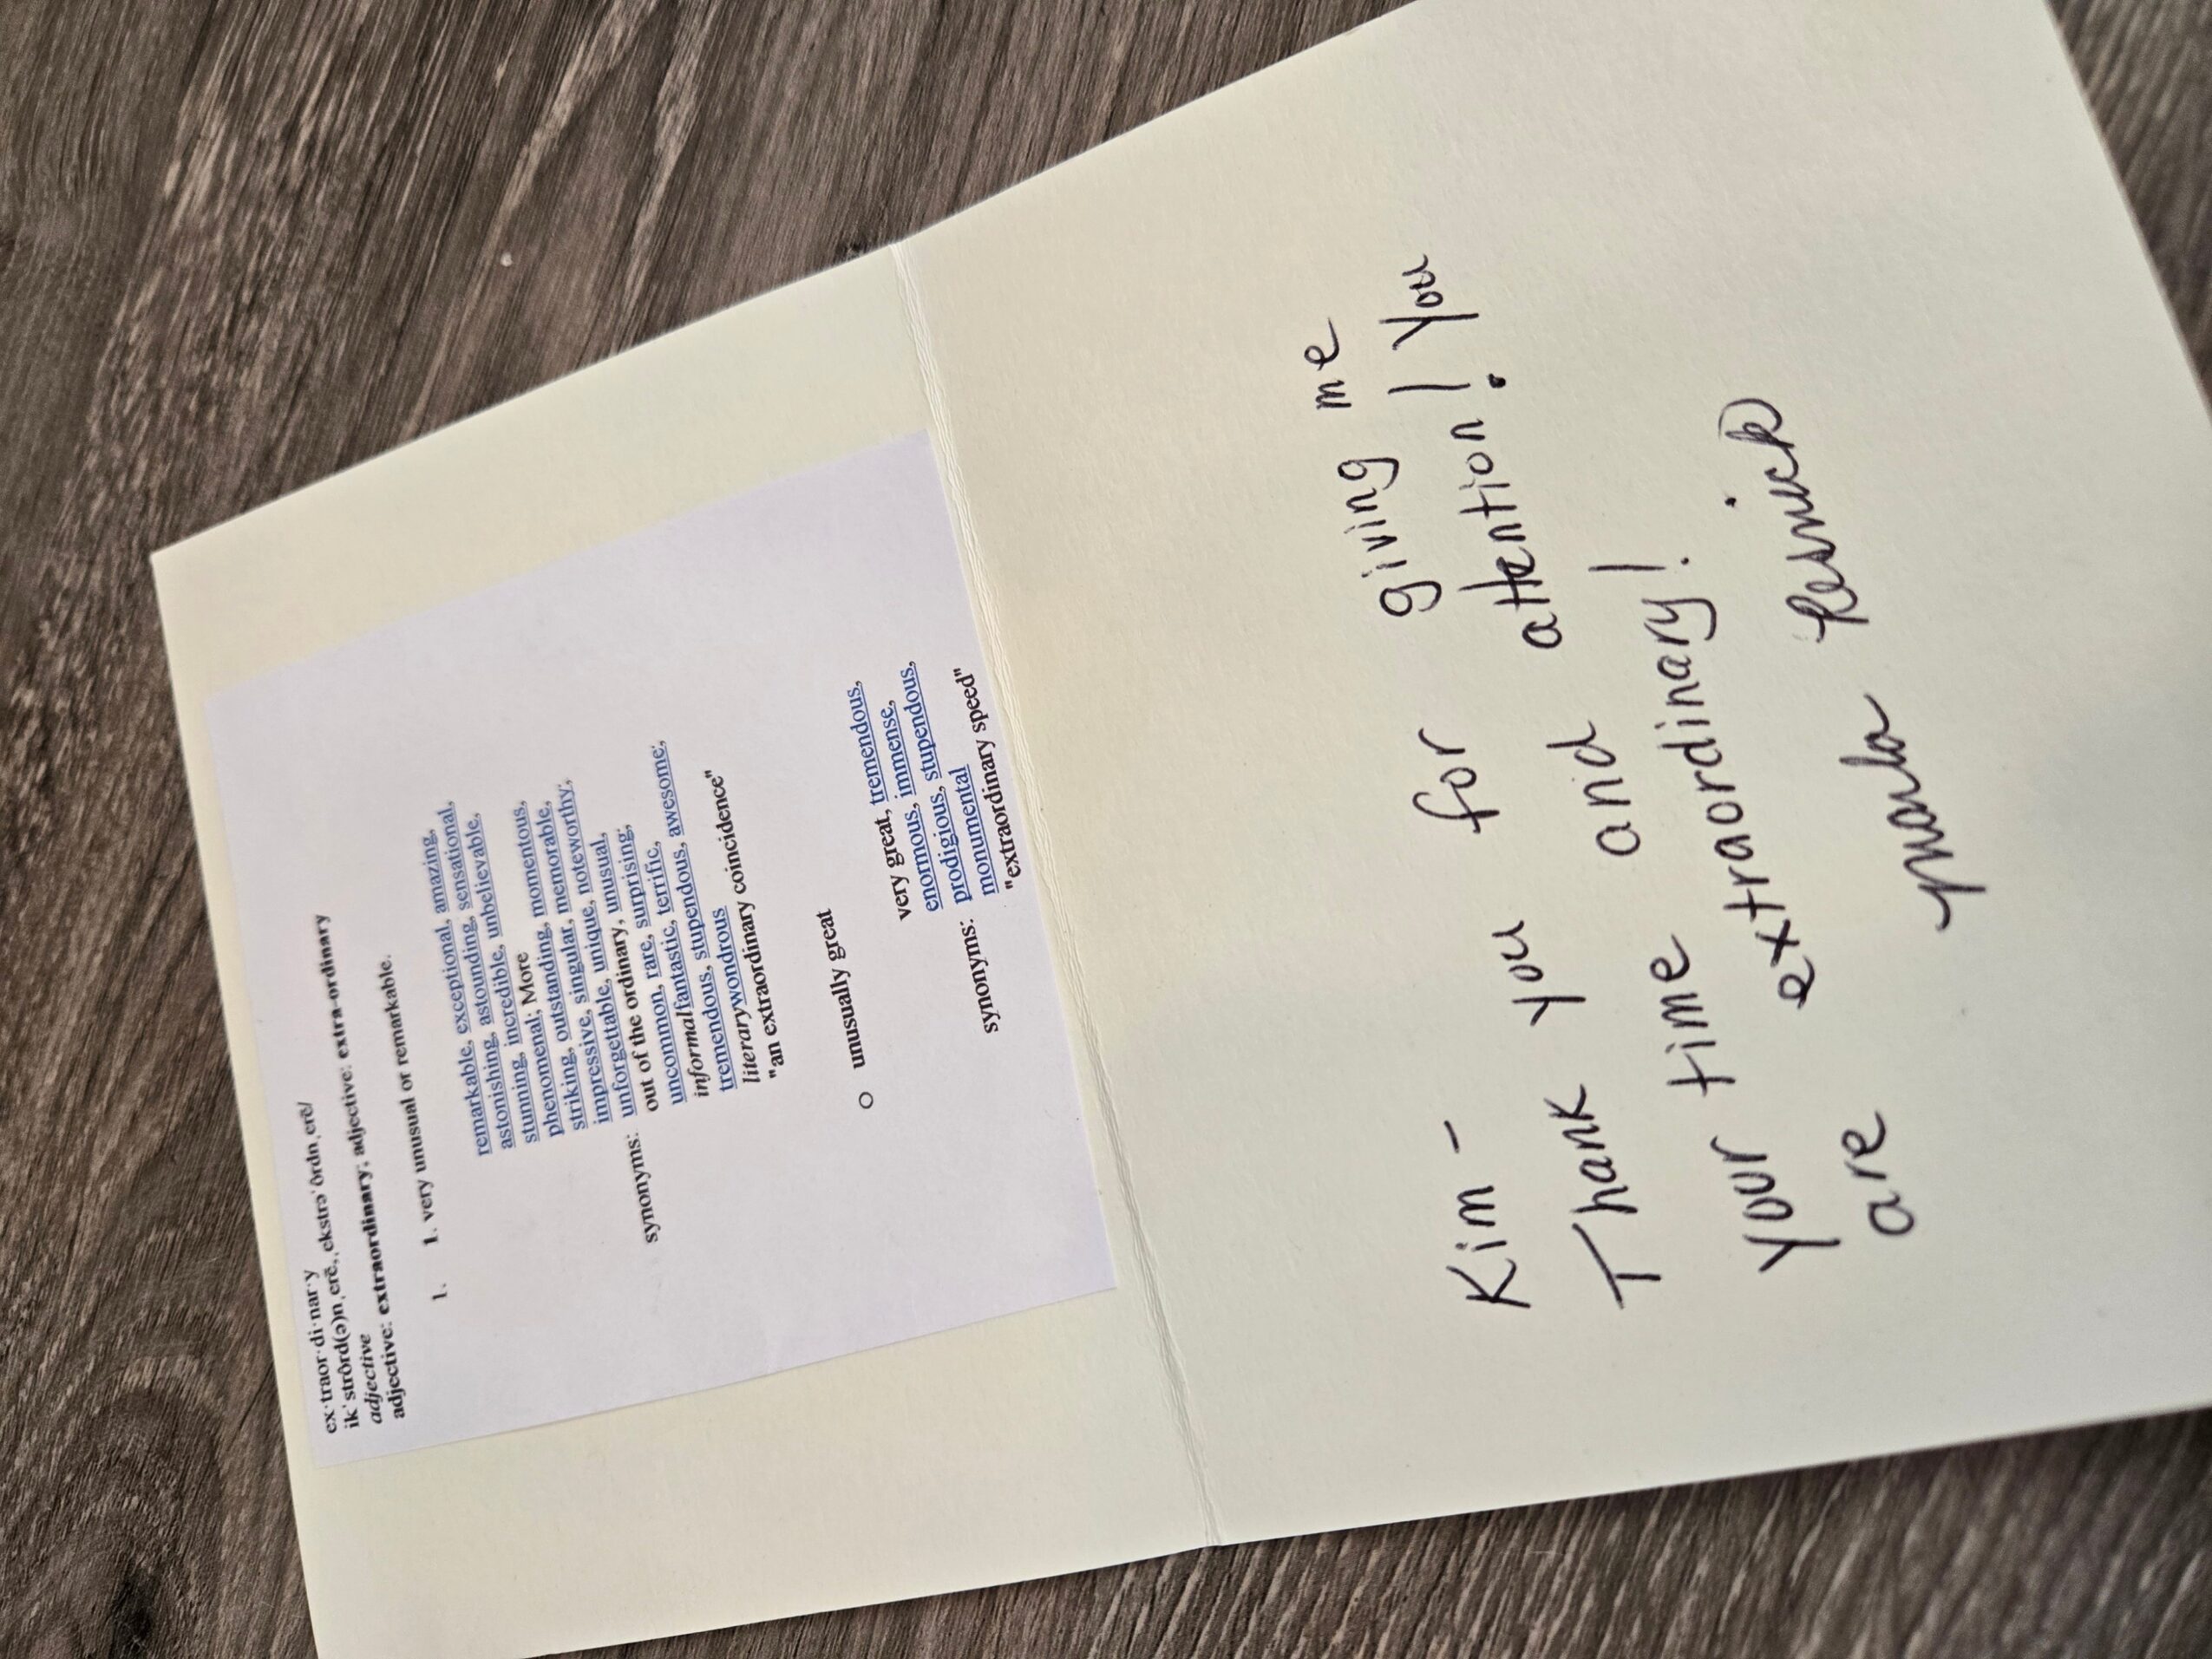 ex·traor·di·nar·y
ikˈstrôrd(ə)nˌerē,ˌekstrəˈôrdnˌerē/
adjective
adjective: extraordinary; adjective: extra-ordinary
1. 1. very unusual or remarkable.
remarkable, exceptional, amazing,
astonishing, astounding, sensational,
stunning, incredible, unbelievable,
phenomenal; More
striking, outstanding, momentous,
impressive, singular, memorable,
unforgettable, unique, noteworthy;
synonyms: out of the ordinary, unusual,
uncommon, rare, surprising;
informal fantastic, terrific,
tremendous, stupendous, awesome;
literary wondrous
"an extraordinary coincidence"
○ unusually great
very great, tremendous,
enormous, immense,
synonyms: prodigious, stupendous,
monumental
"extraordinary speed"
Kim -
Thank you for giving me
your time and attention! You
are extraordinary!